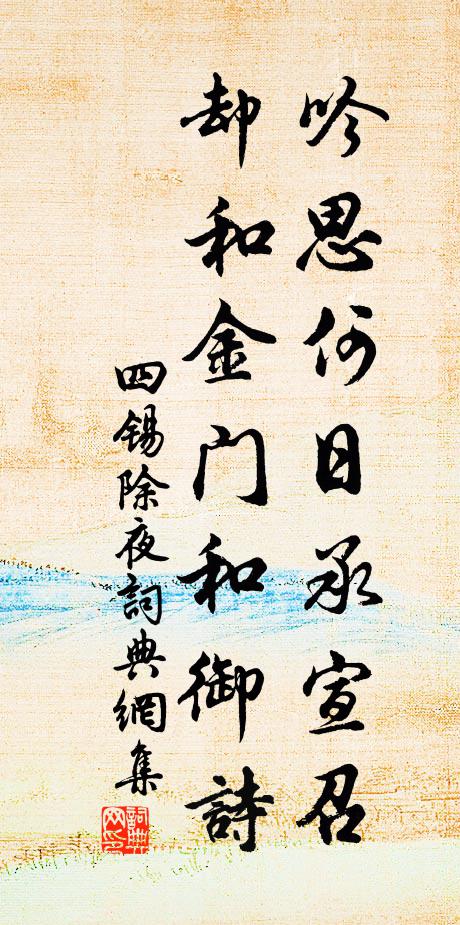 吟思何日承宣召
却和金门和御詩
四锡除夜詞典網集
詞典网印